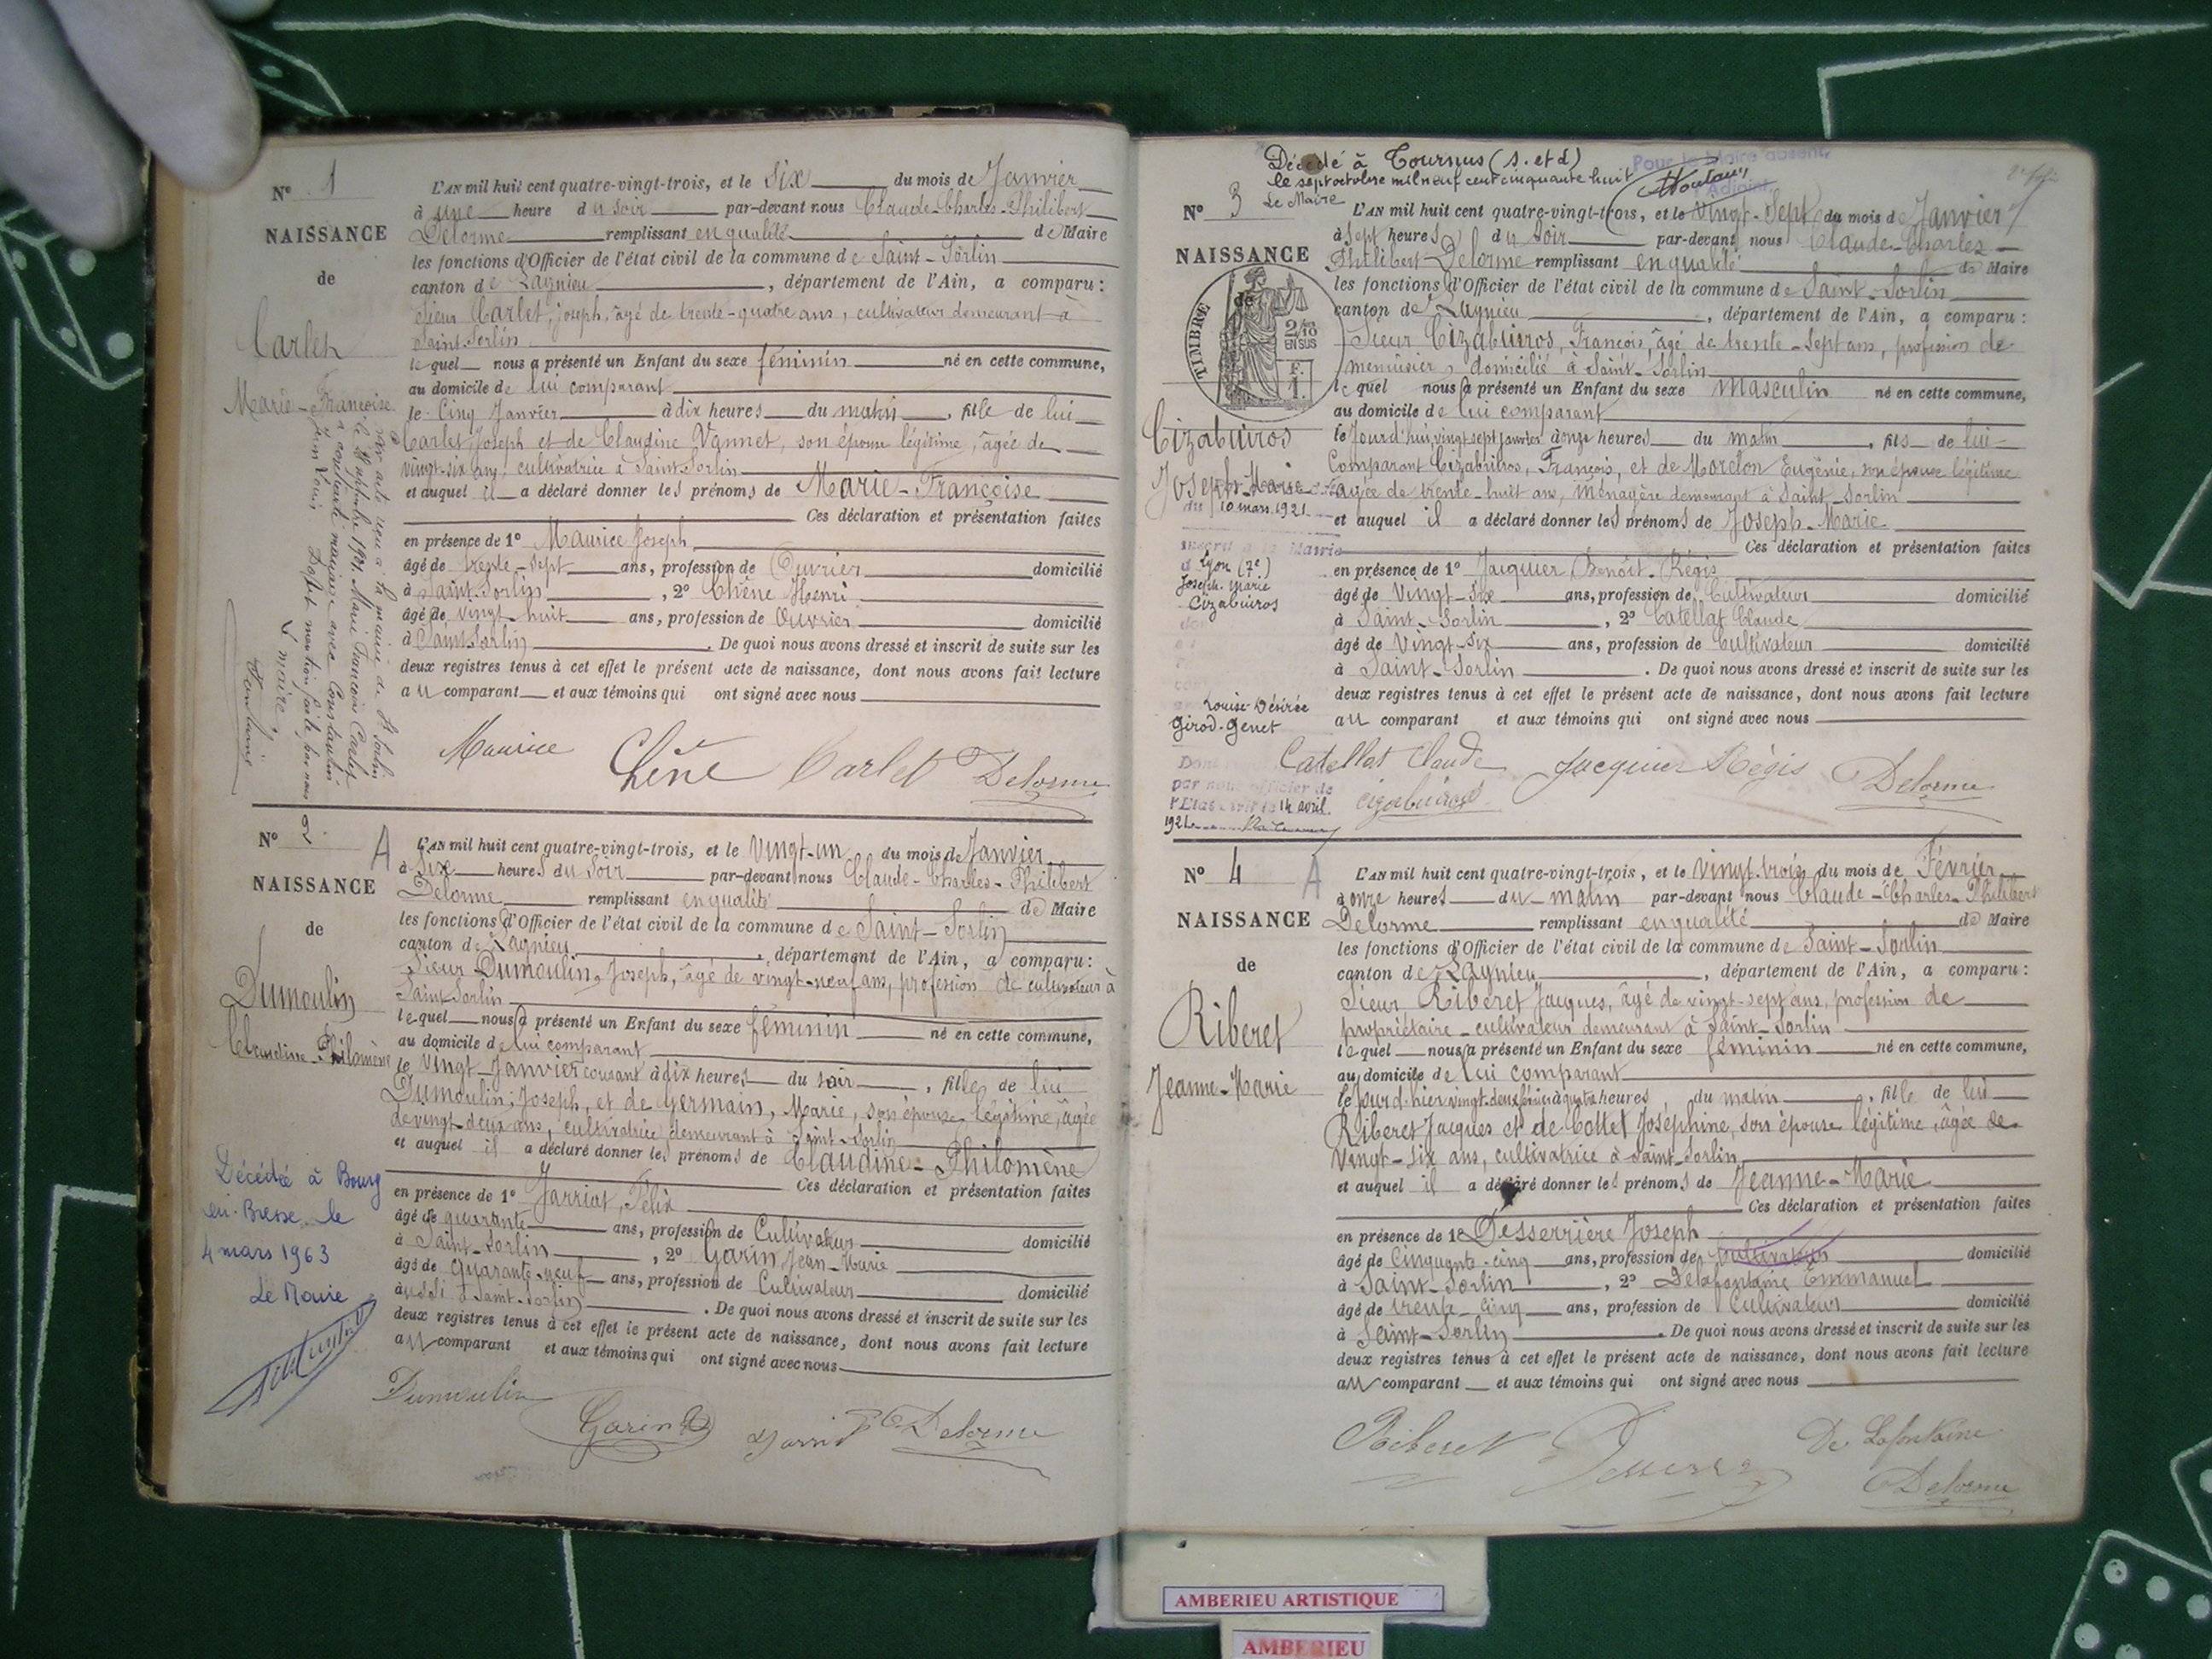 N° 1
NAISSANCE
de
Carlet
Marie-Françoise
L'AN mil huit cent quatre-vingt-trois, et le Six du mois de Janvier
à une heure du soir par-devant nous Claude-Charles-Philibert
Delorme remplissant en qualité de Maire
les fonctions d'Officier de l'état civil de la commune de Saint-Sorlin
canton de Lagnieu, département de l'Ain, a comparu :
Sieur Carlet, Joseph, âgé de trente-quatre ans, cultivateur demeurant à
Saint-Sorlin
lequel nous a présenté un Enfant du sexe féminin né en cette commune,
au domicile de lui comparant
le Cinq Janvier à dix heures du matin, fille de lui
Carlet Joseph et de Claudine Vannet, son épouse légitime, âgée de
vingt-six ans, cultivatrice à Saint-Sorlin
et auquel il a déclaré donner les prénoms de Marie-Françoise
Ces déclaration et présentation faites
en présence de 1° Maurice Joseph
âgé de trente-sept ans, profession de Ouvrier domicilié
à Saint-Sorlin, 2° Chêne Henri
âgé de vingt-huit ans, profession de Ouvrier domicilié
à Saint-Sorlin. De quoi nous avons dressé et inscrit de suite sur les
deux registres tenus à cet effet le présent acte de naissance, dont nous avons fait lecture
au comparant et aux témoins qui ont signé avec nous
Maurice Chêne Carlet Delorme
N° 2
A
NAISSANCE
de
Dumoulin
Claudine-Philomène
L'AN mil huit cent quatre-vingt-trois, et le Vingt-un du mois de Janvier
à Six heures du Soir par-devant nous Claude-Charles-Philibert
Delorme remplissant en qualité de Maire
les fonctions d'Officier de l'état civil de la commune de Saint-Sorlin
canton de Lagnieu, département de l'Ain, a comparu :
Sieur Dumoulin, Joseph, âgé de vingt-neuf ans, profession de cultivateur à
Saint Sorlin
lequel nous a présenté un Enfant du sexe féminin né en cette commune,
au domicile de lui comparant
le Vingt-Janvier courant à dix heures du soir, fille de lui
Dumoulin, Joseph, et de Germain, Marie, son épouse légitime, âgée
de vingt-deux ans, cultivatrice demeurant à Saint-Sorlin
et auquel il a déclaré donner les prénoms de Claudine-Philomène
Ces déclaration et présentation faites
en présence de 1° Jarriat, Félix
âgé de quarante ans, profession de Cultivateur domicilié
à Saint-Sorlin, 2° Garin Jean-Marie
âgé de Quarante-neuf ans, profession de Cultivateur domicilié
aussi à Saint-Sorlin. De quoi nous avons dressé et inscrit de suite sur les
deux registres tenus à cet effet le présent acte de naissance, dont nous avons fait lecture
au comparant et aux témoins qui ont signé avec nous
Décédée à Bourg
en-Bresse le
4 mars 1963
Le Maire
Dumoulin Garin Delorme
Décédé à Tournus (S. et L)
le sept octobre mil neuf cent cinquante huit
Le Maire
Pour le Maire absent,
l'Adjoint
N° 3
NAISSANCE
de
TIMBRE
2/10 EN SUS
F. 1.
Cizabuiros
Joseph-Marie
du 10 mars 1921
Lyon (7e)
Joseph-Marie
Cizabuiros
Louise-Désirée
Girod-Genet
par nous officier de
l'Etat civil le 14 avril
1921
L'AN mil huit cent quatre-vingt-trois, et le Vingt-Sept du mois de Janvier
à Sept heures du Soir par-devant nous Claude-Charles
Philibert Delorme remplissant en qualité de Maire
les fonctions d'Officier de l'état civil de la commune de Saint-Sorlin
canton de Lagnieu, département de l'Ain, a comparu :
Sieur Cizabuiros, François, âgé de trente-sept ans, profession de
menuisier, domicilié à Saint-Sorlin
lequel nous a présenté un Enfant du sexe masculin né en cette commune,
au domicile de lui comparant
le Jourd'hui vingt sept janvier à onze heures du matin, fils de lui
Comparant Cizabuiros, François, et de Morelon Eugénie, son épouse légitime
âgée de trente-huit ans, ménagère demeurant à Saint-Sorlin
et auquel il a déclaré donner les prénoms de Joseph-Marie
Ces déclaration et présentation faites
en présence de 1° Jacquier, Benoît-Régis
âgé de Vingt-six ans, profession de Cultivateur domicilié
à Saint-Sorlin, 2° Catellat Claude
âgé de Vingt-six ans, profession de Cultivateur domicilié
à Saint-Sorlin. De quoi nous avons dressé et inscrit de suite sur les
deux registres tenus à cet effet le présent acte de naissance, dont nous avons fait lecture
au comparant et aux témoins qui ont signé avec nous
Catellat Claude Jacquier Régis Delorme
Cizabuiros
N° 4
A
NAISSANCE
de
Riberet
Jeanne-Marie
L'AN mil huit cent quatre-vingt-trois, et le Vingt-trois du mois de Février
à onze heures du matin par-devant nous Claude-Charles-Philibert
Delorme remplissant en qualité de Maire
les fonctions d'Officier de l'état civil de la commune de Saint-Sorlin
canton de Lagnieu, département de l'Ain, a comparu :
Sieur Riberet Jacques, âgé de vingt-sept ans, profession de
propriétaire-cultivateur demeurant à Saint-Sorlin
lequel nous a présenté un Enfant du sexe féminin né en cette commune,
au domicile de lui comparant
le Jour d'hier vingt-deux février à quatre heures du matin, fille de lui
Riberet Jacques et de Cottet Joséphine, son épouse légitime, âgée de
Vingt-six ans, cultivatrice à Saint-Sorlin
et auquel il a déclaré donner les prénoms de Jeanne-Marie
Ces déclaration et présentation faites
en présence de 1° Desserrière Joseph
âgé de Cinquante-cinq ans, profession de Cultivateur domicilié
à Saint-Sorlin, 2° Delafontaine Emmanuel
âgé de trente-cinq ans, profession de Cultivateur domicilié
à Saint-Sorlin. De quoi nous avons dressé et inscrit de suite sur les
deux registres tenus à cet effet le présent acte de naissance, dont nous avons fait lecture
au comparant et aux témoins qui ont signé avec nous
Riberet De Lafontaine
Delorme
AMBERIEU ARTISTIQUE
AMBERIEU